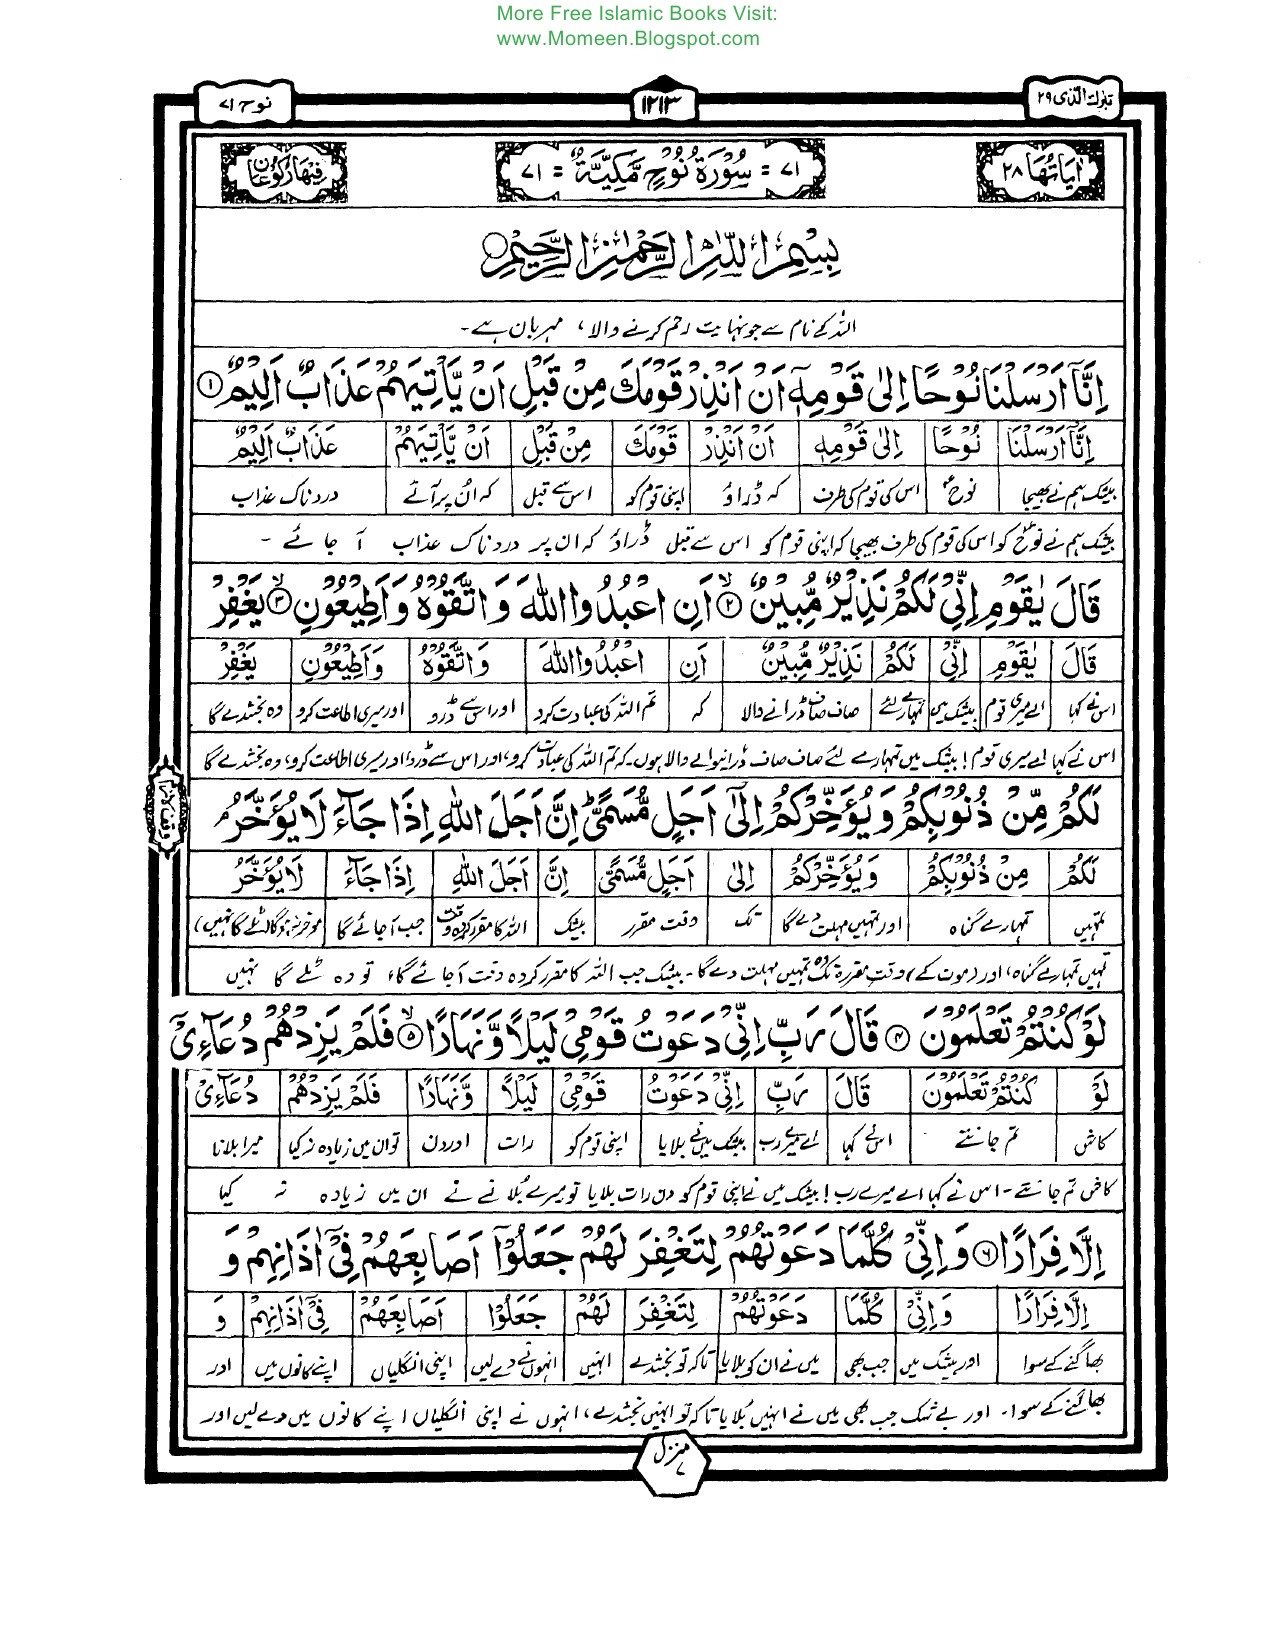 More Free Islamic Books Visit:
www.Momeen.Blogspot.com
تبٰرك الذى ۲۹
۱۲۱۳
نوح ۷۱
اٰیَاتُهَا ۲۸
۷۱ = سُوْرَةُ نُوْحٍ مَّكِّیَّةٌ = ۷۱
بِسْمِ اللّٰهِ الرَّحْمٰنِ الرَّحِیْمِ
اللہ کے نام سے جو نہایت رحم کرنے والا، مہربان ہے۔
اِنَّاۤ اَرْسَلْنَا نُوْحًا اِلٰى قَوْمِهٖۤ اَنْ اَنْذِرْ قَوْمَكَ مِنْ قَبْلِ اَنْ یَّاْتِیَهُمْ عَذَابٌ اَلِیْمٌ ۱
اِنَّاۤ اَرْسَلْنَا نُوْحًا اِلٰى قَوْمِهٖ اَنْ اَنْذِرْ قَوْمَكَ مِنْ قَبْلِ اَنْ یَّاْتِیَهُمْ عَذَابٌ اَلِیْمٌ
بیشک ہم نے بھیجا نوحؑ اس کی قوم کی طرف کہ ڈراؤ اپنی قوم کو اس سے قبل کہ ان پر آئے دردناک عذاب
بیشک ہم نے نوحؑ کو اس کی قوم کی طرف بھیجا کہ اپنی قوم کو اس سے قبل ڈراؤ کہ ان پر دردناک عذاب آ جائے ۔
قَالَ یٰقَوْمِ اِنِّیْ لَكُمْ نَذِیْرٌ مُّبِیْنٌ ۲ اَنِ اعْبُدُوا اللّٰهَ وَ اتَّقُوْهُ وَ اَطِیْعُوْنِ ۳ یَغْفِرْ
قَالَ یٰقَوْمِ اِنِّیْ لَكُمْ نَذِیْرٌ مُّبِیْنٌ اَنِ اعْبُدُوا اللّٰهَ وَ اتَّقُوْهُ وَ اَطِیْعُوْنِ یَغْفِرْ
اس نے کہا اے میری قوم بیشک میں تمہارے لئے صاف صاف ڈرانے والا کہ تم اللہ کی عبادت کرو اور اس سے ڈرو اور میری اطاعت کرو وہ بخشدے گا
اس نے کہا اے میری قوم! بیشک میں تمہارے لئے صاف صاف ڈرانیوالے والا ہوں۔ کہ تم اللہ کی عبادت کرو، اور اس سے ڈرو اور میری اطاعت کرو، وہ بخشدے گا
لَكُمْ مِّنْ ذُنُوْبِكُمْ وَ یُؤَخِّرْكُمْ اِلٰۤى اَجَلٍ مُّسَمًّى اِنَّ اَجَلَ اللّٰهِ اِذَا جَآءَ لَا یُؤَخَّرُ
لَكُمْ مِنْ ذُنُوْبِكُمْ وَ یُؤَخِّرْكُمْ اِلٰى اَجَلٍ مُّسَمًّى اِنَّ اَجَلَ اللّٰهِ اِذَا جَآءَ لَا یُؤَخَّرُ
تمہیں تمہارے گناہ اور تمہیں مہلت دے گا تک وقت مقرر بیشک اللہ کا مقرر کردہ وقت جب آ جائے گا
تمہیں تمہارے گناہ، اور (موت کے) وقت مقررہ تک وہ تمہیں مہلت دے گا۔ بیشک جب اللہ کا مقرر کردہ وقت آ جائے گا، تو وہ ٹلے گا نہیں
لَوْ كُنْتُمْ تَعْلَمُوْنَ ۴ قَالَ رَبِّ اِنِّیْ دَعَوْتُ قَوْمِیْ لَیْلًا وَّ نَهَارًا ۵ فَلَمْ یَزِدْهُمْ دُعَآءِیْۤ
لَوْ كُنْتُمْ تَعْلَمُوْنَ قَالَ رَبِّ اِنِّیْ دَعَوْتُ قَوْمِیْ لَیْلًا وَّ نَهَارًا فَلَمْ یَزِدْهُمْ دُعَآءِیْ
کاش تم جانتے اس نے کہا اے میرے رب بیشک میں نے بلایا اپنی قوم کو رات اور دن تو ان میں زیادہ نہ کیا میرا بلانا
کاش تم جانتے۔ اس نے کہا اے میرے رب! بیشک میں نے اپنی قوم کو دن رات بلایا تو میرے بُلانے نے ان میں زیادہ نہ کیا
اِلَّا فِرَارًا ۶ وَ اِنِّیْ كُلَّمَا دَعَوْتُهُمْ لِتَغْفِرَ لَهُمْ جَعَلُوْۤا اَصَابِعَهُمْ فِیْۤ اٰذَانِهِمْ وَ
اِلَّا فِرَارًا وَ اِنِّیْ كُلَّمَا دَعَوْتُهُمْ لِتَغْفِرَ لَهُمْ جَعَلُوْا اَصَابِعَهُمْ فِیْۤ اٰذَانِهِمْ وَ
بھاگنے کے سوا اور بیشک میں جب بھی میں نے ان کو بلایا تاکہ تو بخشدے انہیں انہوں نے دے لیں اپنی انگلیاں اپنے کانوں میں اور
بھاگنے کے سوا۔ اور بے شک جب بھی میں نے انہیں بُلایا تاکہ تو انہیں بخشدے، انہوں نے اپنی انگلیاں اپنے کانوں میں دے لیں اور
منزل ۷